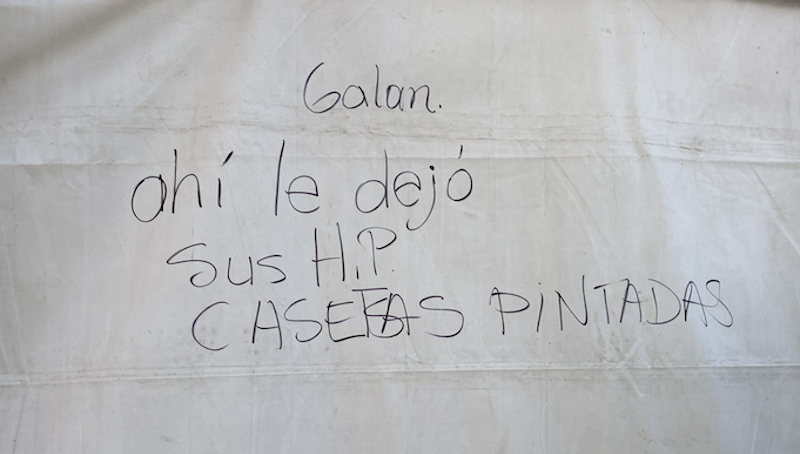 Galan.
ahí le dejó
Sus H.P.
CASETAS PINTADAS